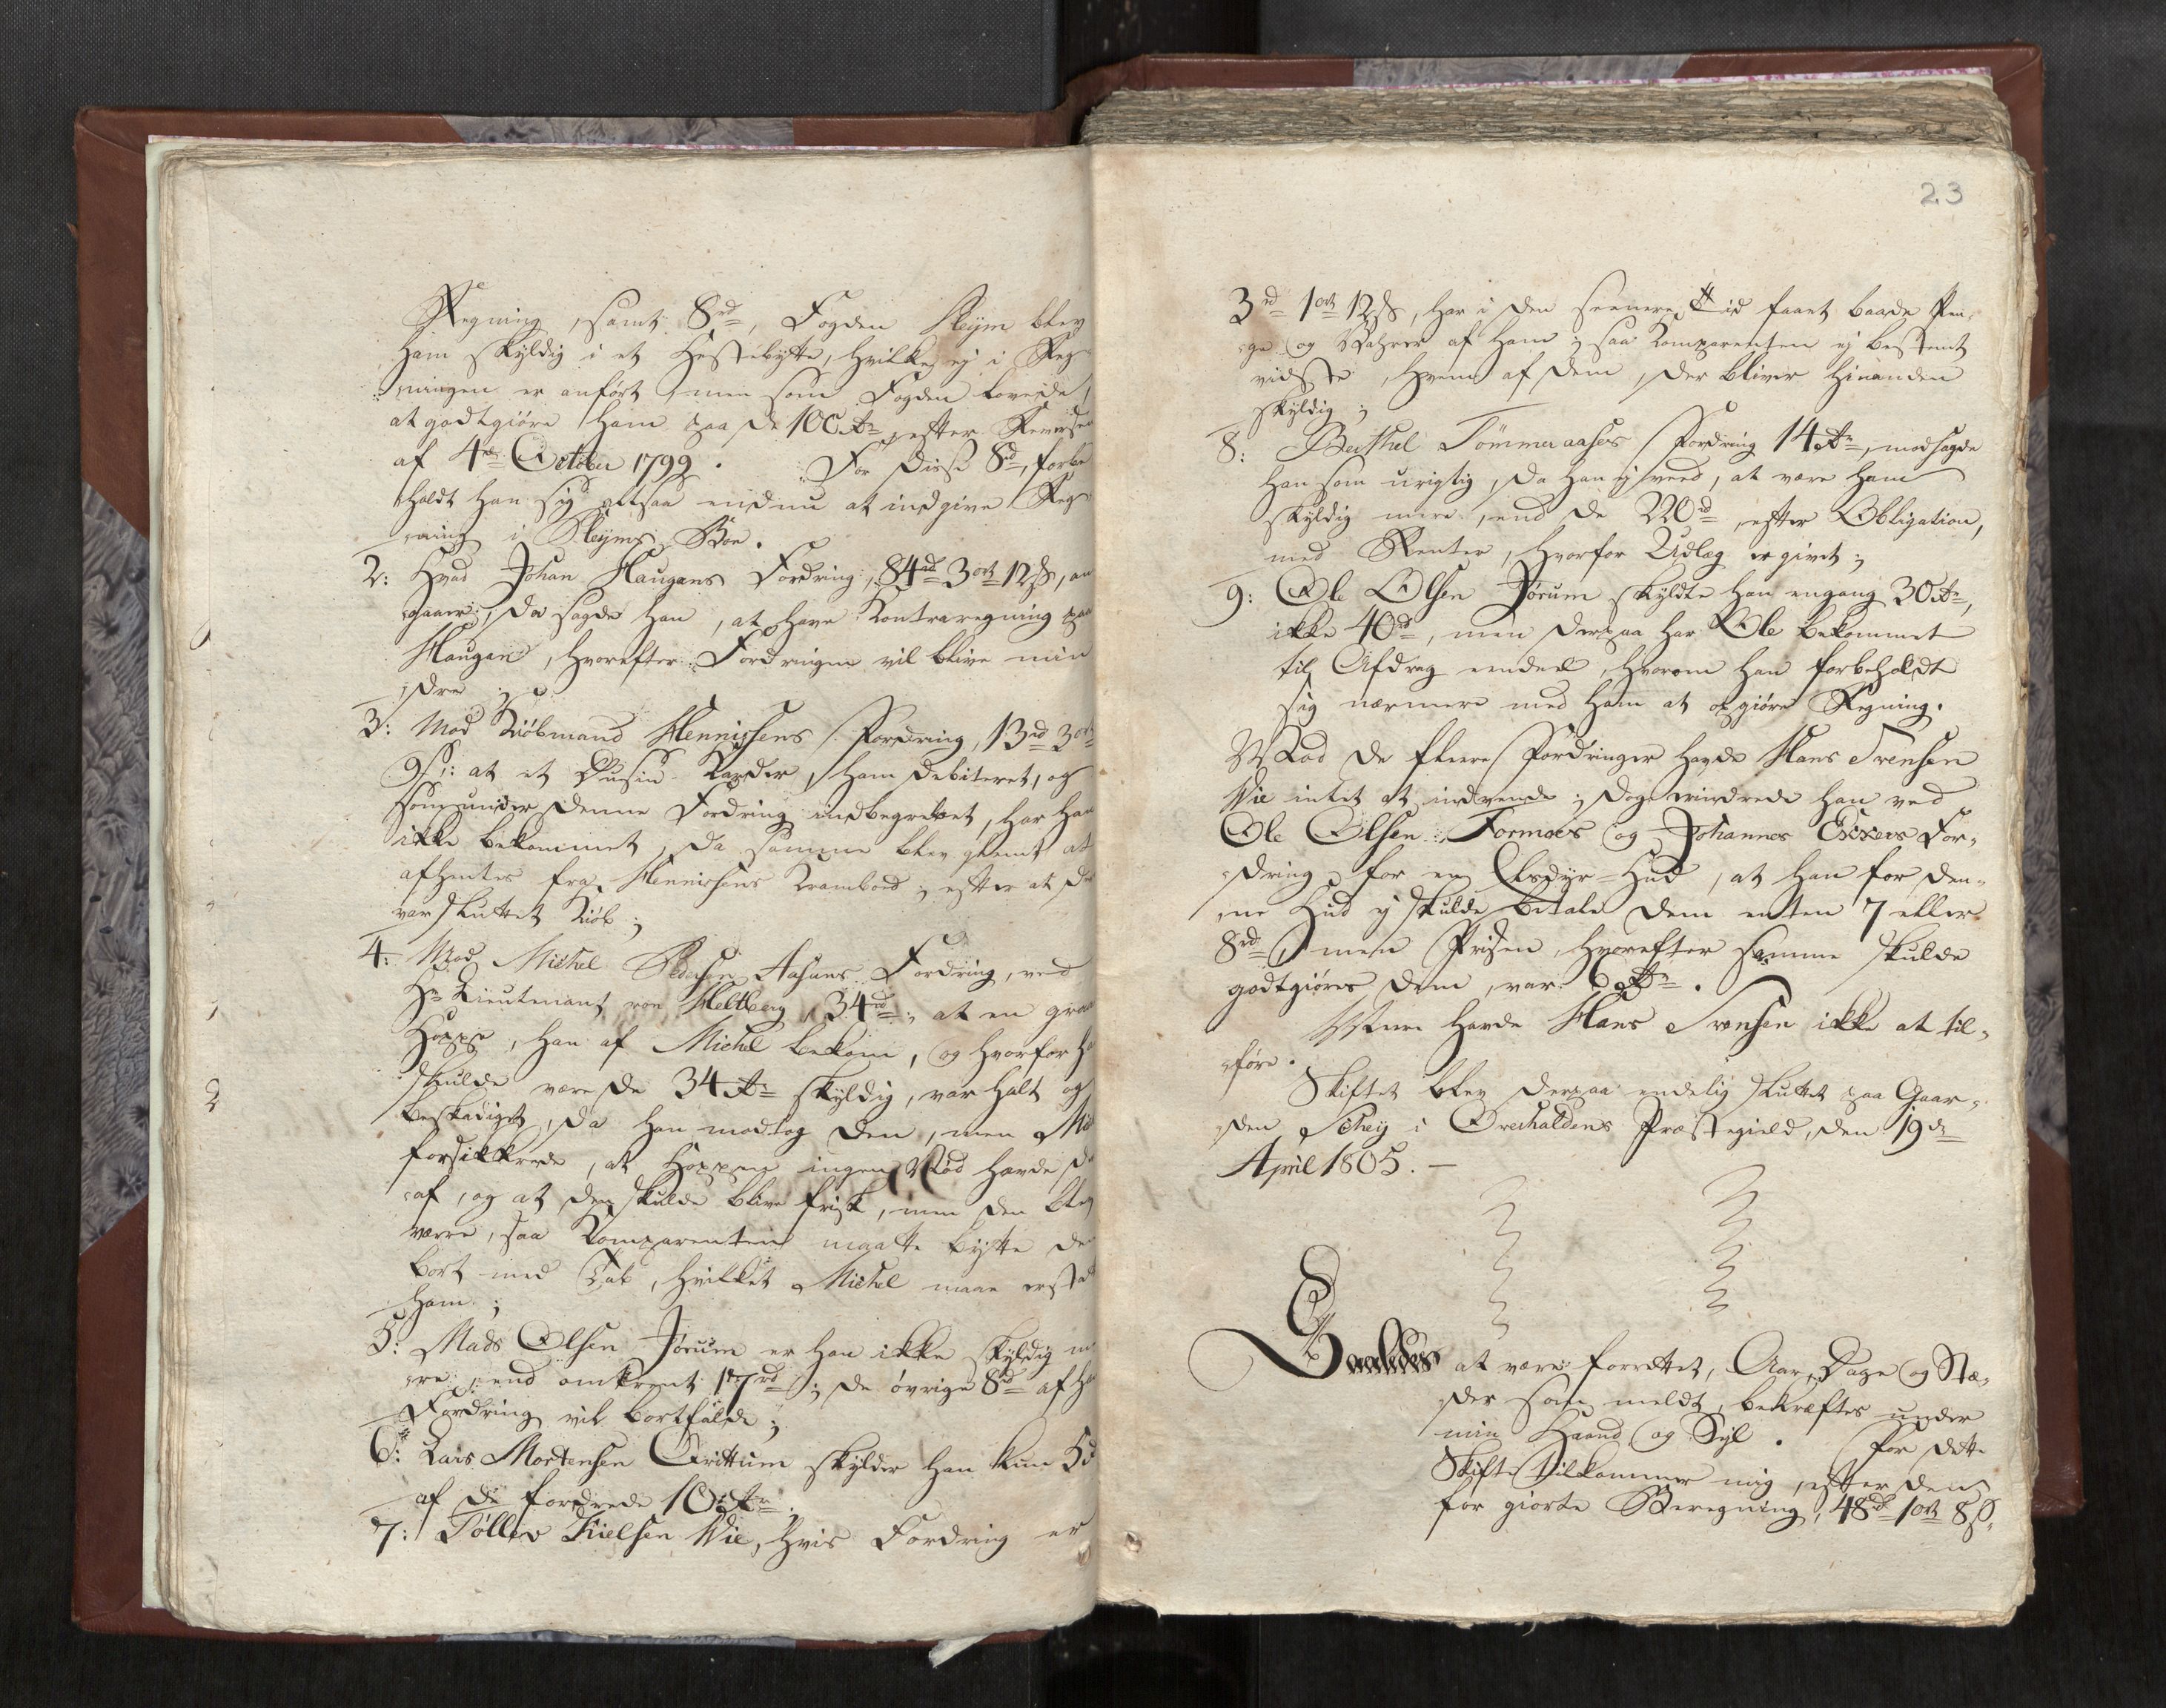 Regning, samt 8rd, Fogden Kleÿm blev
ham skyldig i et Hestebytte, hvilke ej i Reg-
ningen er anført, men som Fogden lovede,
at godtgiøre ham paa de 100 rdr, efter Reversen
af 4de October 1799. For disse 8d, forbe
holdt han sig altsaa endnu at indgive Reg-
ning i Kleÿms Boe.
2: Hvad Johan Haugans Fordring, 84rd 3ort 12ß, an
gaaer, da sagde han, at have Kontraregning paa
Haugan, hvorefter Fordringen vil blive min
dre;
3: Mod Kiøbmand Hennissens Fordring, 13rd 3ort
9ß: at et Dusin Karder, ham debiteret, og
som under denne Fordring indbegrebet, har han
ikke bekommet, da samme blev glemt at
afhentes fra Hennissens Krambod; efter at der
var sluttet Kiøb;
4: Mod Michel Pedersen Aasans Fordring, ved
Hr Lieutenant von Heltberg 34rd; at en graa
Hoppe, han af Michel bekom, og hvorfor ha
skulde være de 34 rdr skyldig, var halt og
beskadiget, da han modtog den, men Mic
forsikkrede, at Hoppen ingen Nød havde de
af, og at den skulde blive frisk, men den blev
værre, saa Komparenten maatte bytte den
bort med Tab, hvilket Michel maae erstat
ham;
5: Mads Olsen Jørum er han ikke skyldig me
re, end omkrent 17rd; de øvrige 8d af ha
Fordring vil bortfalde;
6: Lars Mortensen Grittum skylder han kun 5d
af de fordrede 10 rdr.
7: Tøllev Kielsen Wie, hvis Fordring er
23
3rd 1ort 12ß, har i den seenere Tid faaet baade Pen-
ge og Vahrer af ham; saa Komparenten ej bestemt
vidste, hvem af dem, der bliver hinanden
skyldig;
8: Berthel Tømmeraases Fordring 14 rdr, modsagde
han som urigtig, da han ej veed, at være ham
skyldig mere, end de 220rd, efter Obligation,
med Renter, hvorfor Udlæg er givet;
9: Ole Olsen Jørum skyldte han engang 30 rdr,
ikke 40rd, men derpaa har Ole bekommet
til Afdrag eendeel, hvorom han forbeholdt
sig nærmere med ham at opgiøre Regning.
Mod de fleere Fordringer havde Hans Svensen
Wie intet at indvende; dog erindrede han ved
Ole Olsen Formoes og Johannes Ekkers For-
dring for en Elsdyr-Hud, at han for den-
ne Hud ej skulde betale dem enten 7 eller
8rd, men Prisen, hvorefter samme skulde
godtgiøres dem, var 6 rdr.
Mere havde Hans Svensen ikke at til-
føre.
Skiftet blev derpaa endelig sluttet paa Gaar-
den Schey i Overhaldens Præstegield, den 19de
April 1805.
Saaledes at være forrettet, Aar, Dage og Stæ-
der som meldt, bekræftes under
min Haand og Seyl. For dette
Skifte tilkommer mig, efter den
for giorte Beregning, 48rd 1ort 8ß.